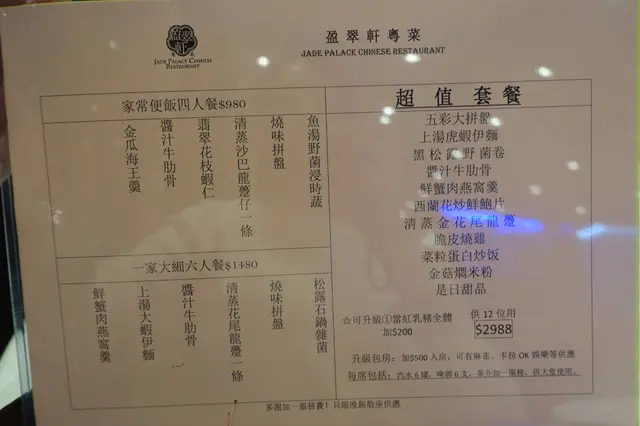 盈翠軒
JADE PALACE CHINESE
RESTAURANT
盈翠軒粵菜
JADE PALACE CHINESE RESTAURANT
家常便飯四人餐$980
魚湯野菌浸時蔬
燒味拼盤
清蒸沙巴龍躉仔一條
翡翠花枝蝦仁
醬汁牛肋骨
金瓜海王羹
一家大細六人餐$1480
松露石鍋雜菌
燒味拼盤
清蒸花尾龍躉一條
醬汁牛肋骨
上湯大蝦伊麵
鮮蟹肉燕窩羹
超值套餐
五彩大拼盤
上湯虎蝦伊麵
黑松露野菌卷
醬汁牛肋骨
鮮蟹肉燕窩羹
西蘭花炒鮮鮑片
清蒸金花尾龍躉
脆皮燒雞
菜粒蛋白炒飯
金菇燜米粉
是日甜品
☆可升級①當紅乳豬全體 供12位用
加$200 $2988
升級包房：加$500入房，可有麻雀、卡拉OK娛樂等供應
每席包括：汽水6罐，啤酒6支，茶介加一服務，供大堂使用。
多謝加一服務費！只限晚飯散座供應